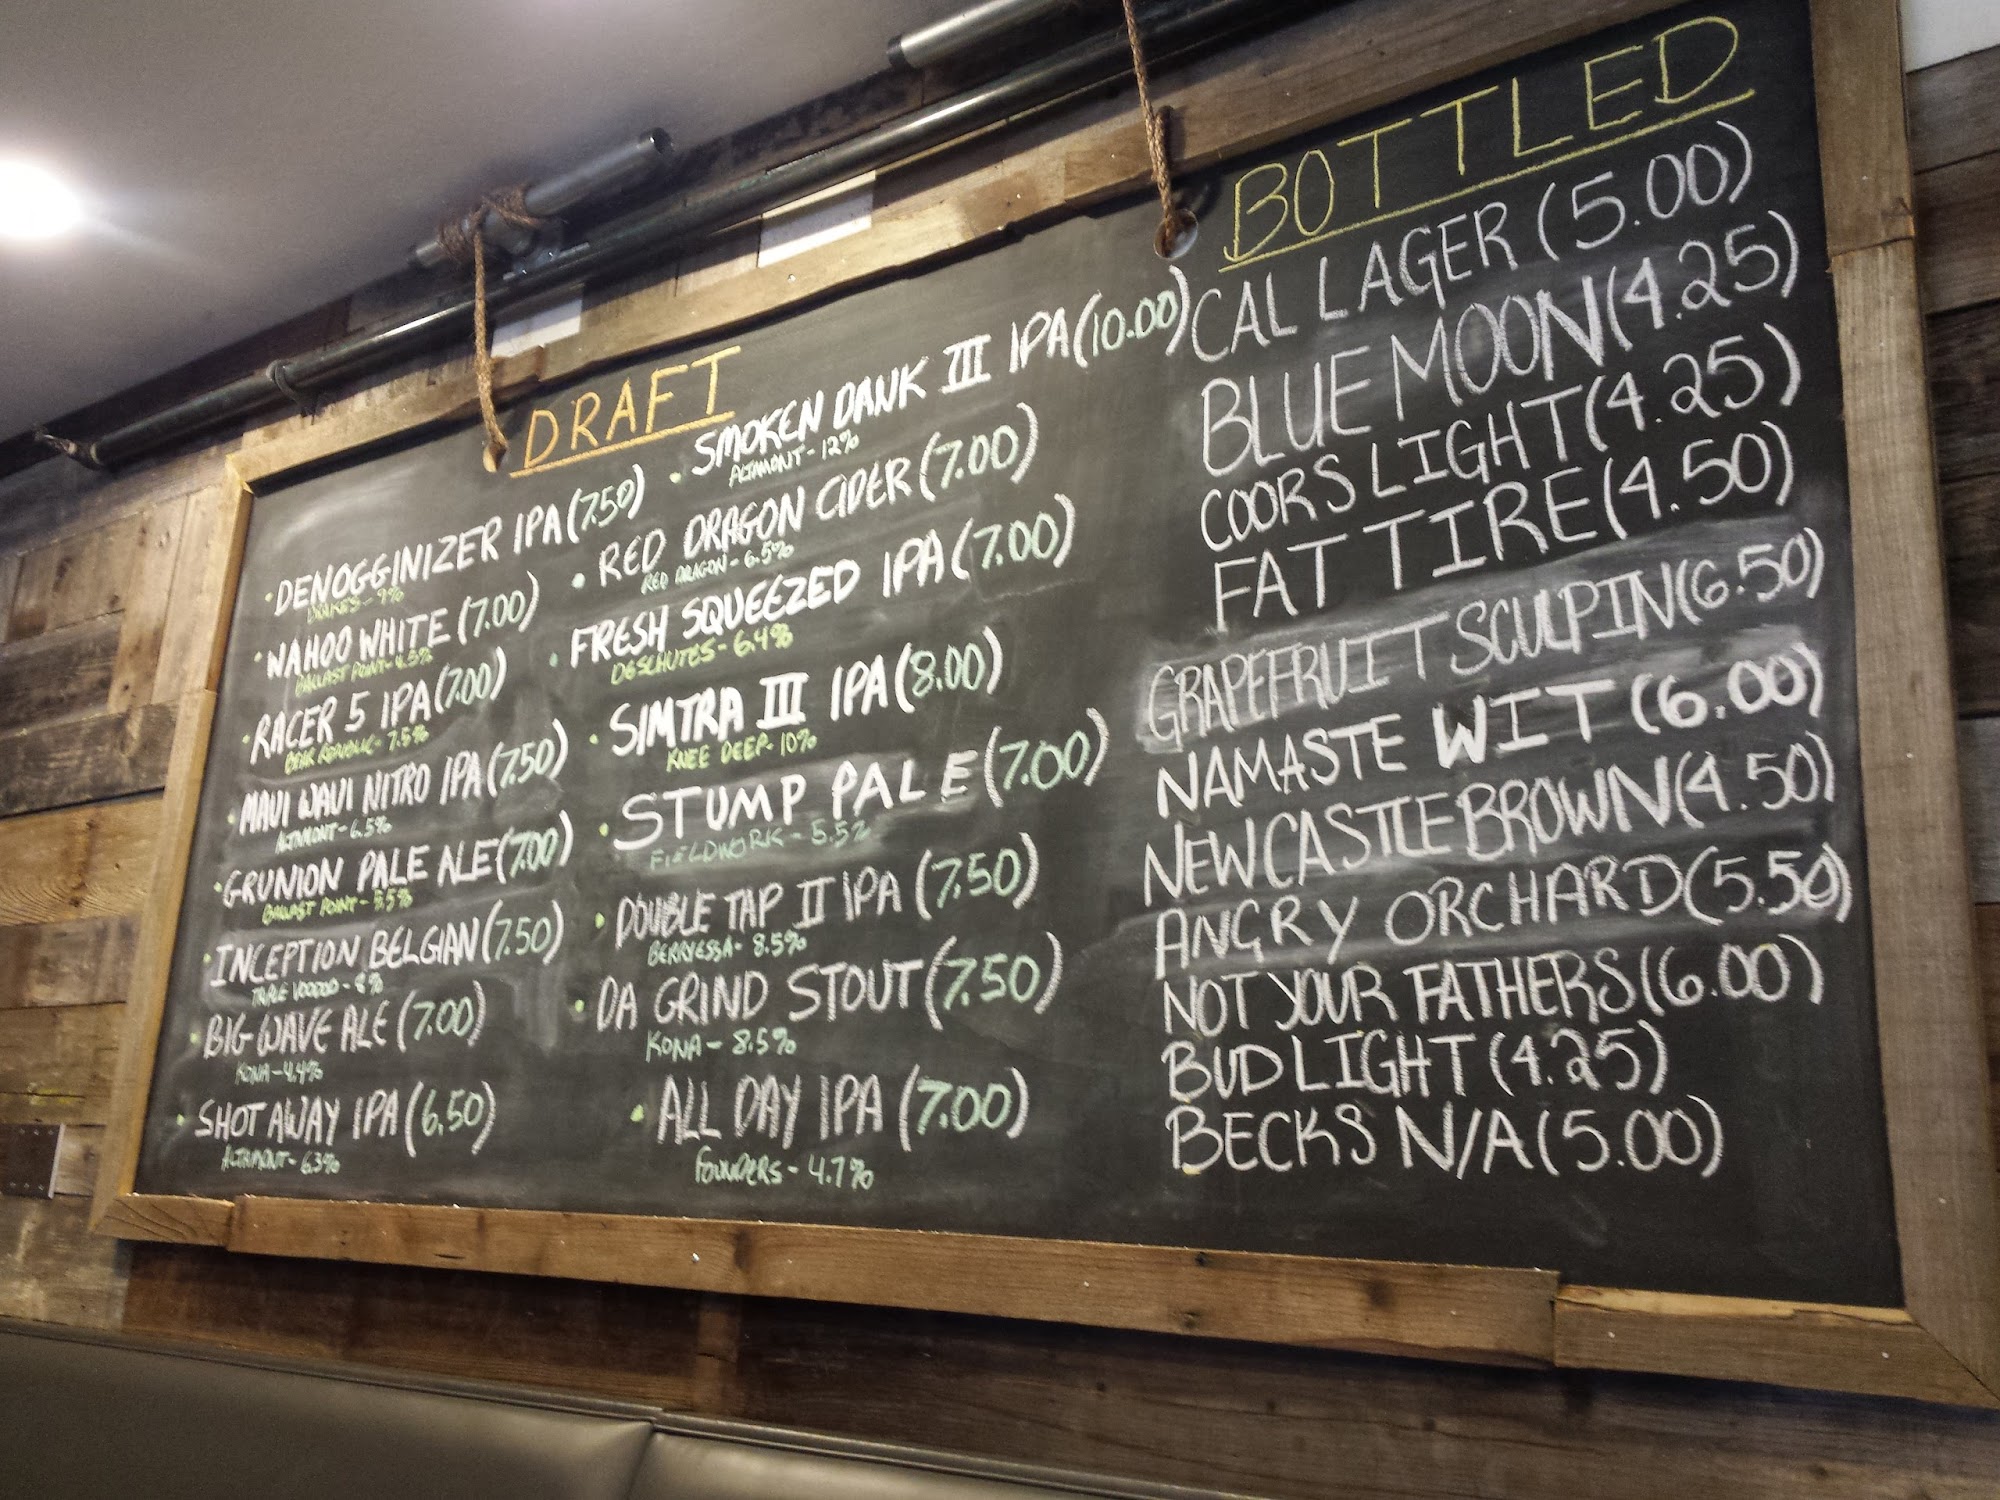 DRAFT
• DENOGGINIZER IPA (7.50)
DRAKES - 9%
• WAHOO WHITE (7.00)
BALLAST POINT - 4.5%
• RACER 5 IPA (7.00)
BEAR REPUBLIC - 7.5%
• MAUI WAUI NITRO IPA (7.50)
ALTAMONT - 6.5%
• GRUNION PALE ALE (7.00)
BALLAST POINT - 5.5%
• INCEPTION BELGIAN (7.50)
TRIPLE VOODOO - 8%
• BIG WAVE ALE (7.00)
KONA - 4.4%
• SHOT AWAY IPA (6.50)
ALTAMONT - 6.3%
• SMOKEN DANK III IPA (10.00)
ALTAMONT - 12%
• RED DRAGON CIDER (7.00)
RED DRAGON - 6.5%
• FRESH SQUEEZED IPA (7.00)
DESCHUTES - 6.4%
• SIMTRA III IPA (8.00)
KNEE DEEP - 10%
• STUMP PALE (7.00)
FIELDWORK - 5.5%
• DOUBLE TAP II IPA (7.50)
BERRYESSA - 8.5%
• DA GRIND STOUT (7.50)
KONA - 8.5%
• ALL DAY IPA (7.00)
FOUNDERS - 4.7%
BOTTLED
CAL LAGER (5.00)
BLUE MOON (4.25)
COORS LIGHT (4.25)
FAT TIRE (4.50)
GRAPEFRUIT SCULPIN (6.50)
NAMASTE WIT (6.00)
NEWCASTLE BROWN (4.50)
ANGRY ORCHARD (5.50)
NOT YOUR FATHERS (6.00)
BUD LIGHT (4.25)
BECKS N/A (5.00)